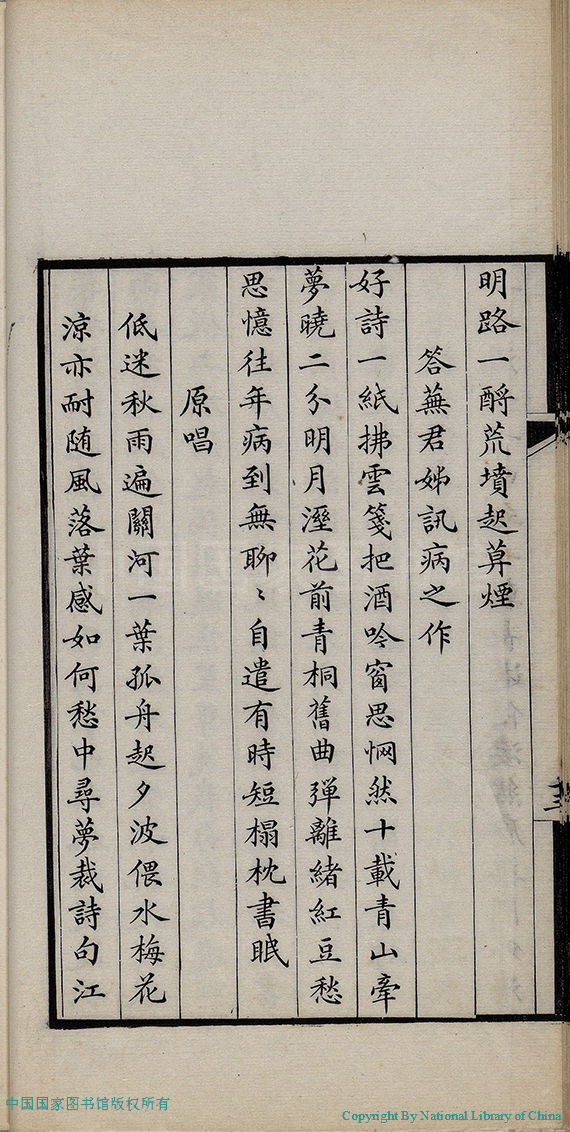 明路一酹荒墳起算煙
答蕪君姊訊病之作
好詩一紙拂雲箋把酒吟窗思惘然十載青山牽
夢曉二分明月溼花前青桐舊曲彈離緒紅豆愁
思憶往年病到無聊〻自遣有時短榻枕書眠
原唱
低迷秋雨遍關河一葉孤舟起夕波偎水梅花
涼亦耐随風落葉感如何愁中尋夢裁詩句江
十二
中国国家图书馆版权所有
Copyright By National Library of China